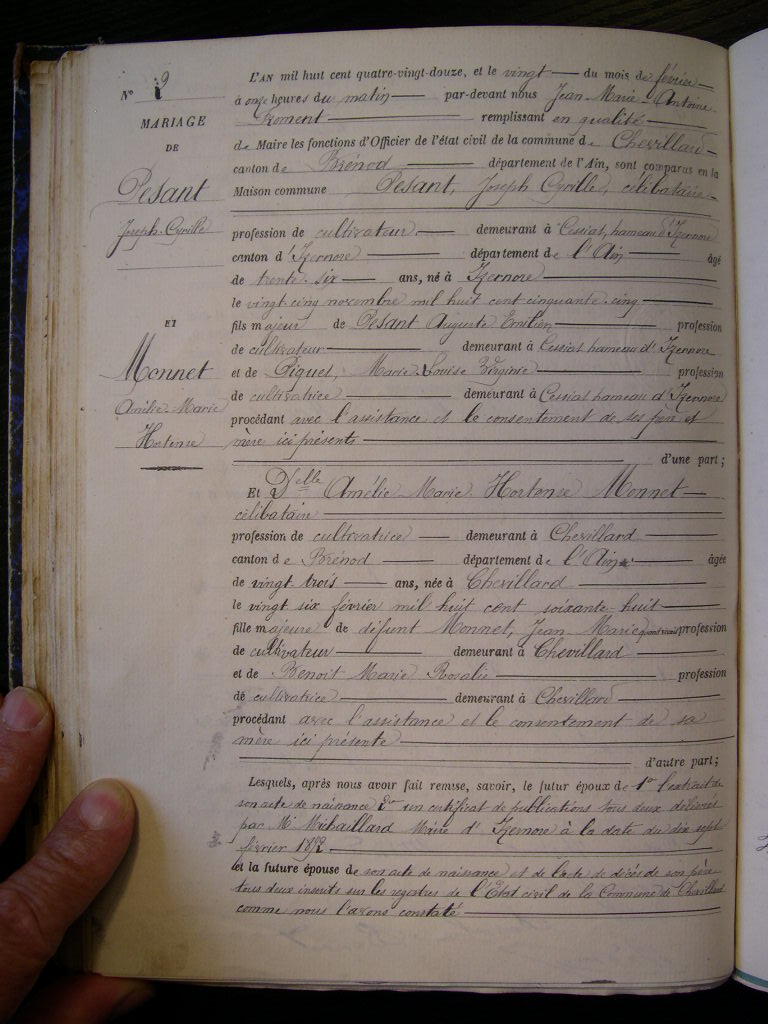 N° 2
MARIAGE
DE
Pesant
Joseph-Cyrille
ET
Monnet
Amélie-Marie
Hortense
L'AN mil huit cent quatre-vingt-douze, et le vingt du mois de février
à onze heures du matin par-devant nous Jean-Marie-Antoine
remplissant en qualité
de Maire les fonctions d'Officier de l'état civil de la commune de Chevillard
canton de Brénod département de l'Ain, sont comparus en la
Maison commune Pesant, Joseph Cyrille, célibataire
profession de cultivateur demeurant à Cessiat, hameau d'Izernore
canton d'Izernore département de l'Ain âgé
de trente-six ans, né à Izernore
le vingt cinq novembre mil huit cent cinquante-cinq
fils majeur de Pesant Auguste Emilien profession
de cultivateur demeurant à Cessiat hameau d'Izernore
et de Piquet, Marie-Louise Virginie profession
de cultivatrice demeurant à Cessiat hameau d'Izernore
procédant avec l'assistance et le consentement de ses père et
mère ici présents
d'une part;
Et Delle Amélie-Marie-Hortense Monnet
célibataire
profession de cultivatrice demeurant à Chevillard
canton de Brénod département de l'Ain âgée
de vingt trois ans, née à Chevillard
le vingt six février mil huit cent soixante-huit
fille majeure de défunt Monnet, Jean-Marie quand vivait profession
de cultivateur demeurant à Chevillard
et de Benoit Marie Rosalie profession
de cultivatrice demeurant à Chevillard
procédant avec l'assistance et le consentement de sa
mère ici présente
d'autre part;
Lesquels, après nous avoir fait remise, savoir, le futur époux de 1° l'extrait de
son acte de naissance 2° un certificat de publications tous deux délivrés
par Mr Maire d'Izernore à la date du dix sept
février 1892
et la future épouse de son acte de naissance et de l'acte de décès de son père
tous deux inscrits sur les registres de l'Etat civil de la Commune de Chevillard
comme nous l'avons constaté